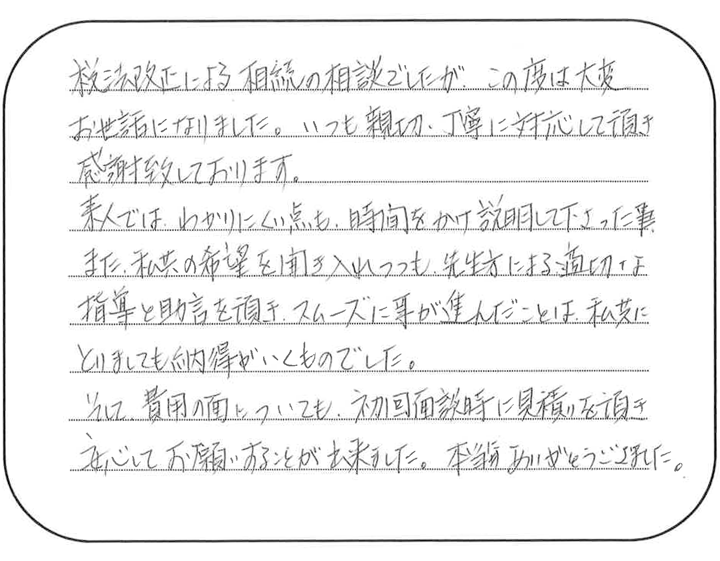 税法改正による相続の相談でしたが、この度は大変
お世話になりました。いつも親切、丁寧に対応して頂き
感謝致しております。
素人では、わかりにくい点も、時間をかけ説明して下さった事、
また、私共の希望を聞き入れつつも、先生方による適切な
指導と助言を頂き、スムーズに事が進んだことは、私共に
とりましても納得がいくものでした。
そして、費用の面についても、初回面談時に見積りを頂き
安心してお願いすることが出来ました。本当にありがとうございました。